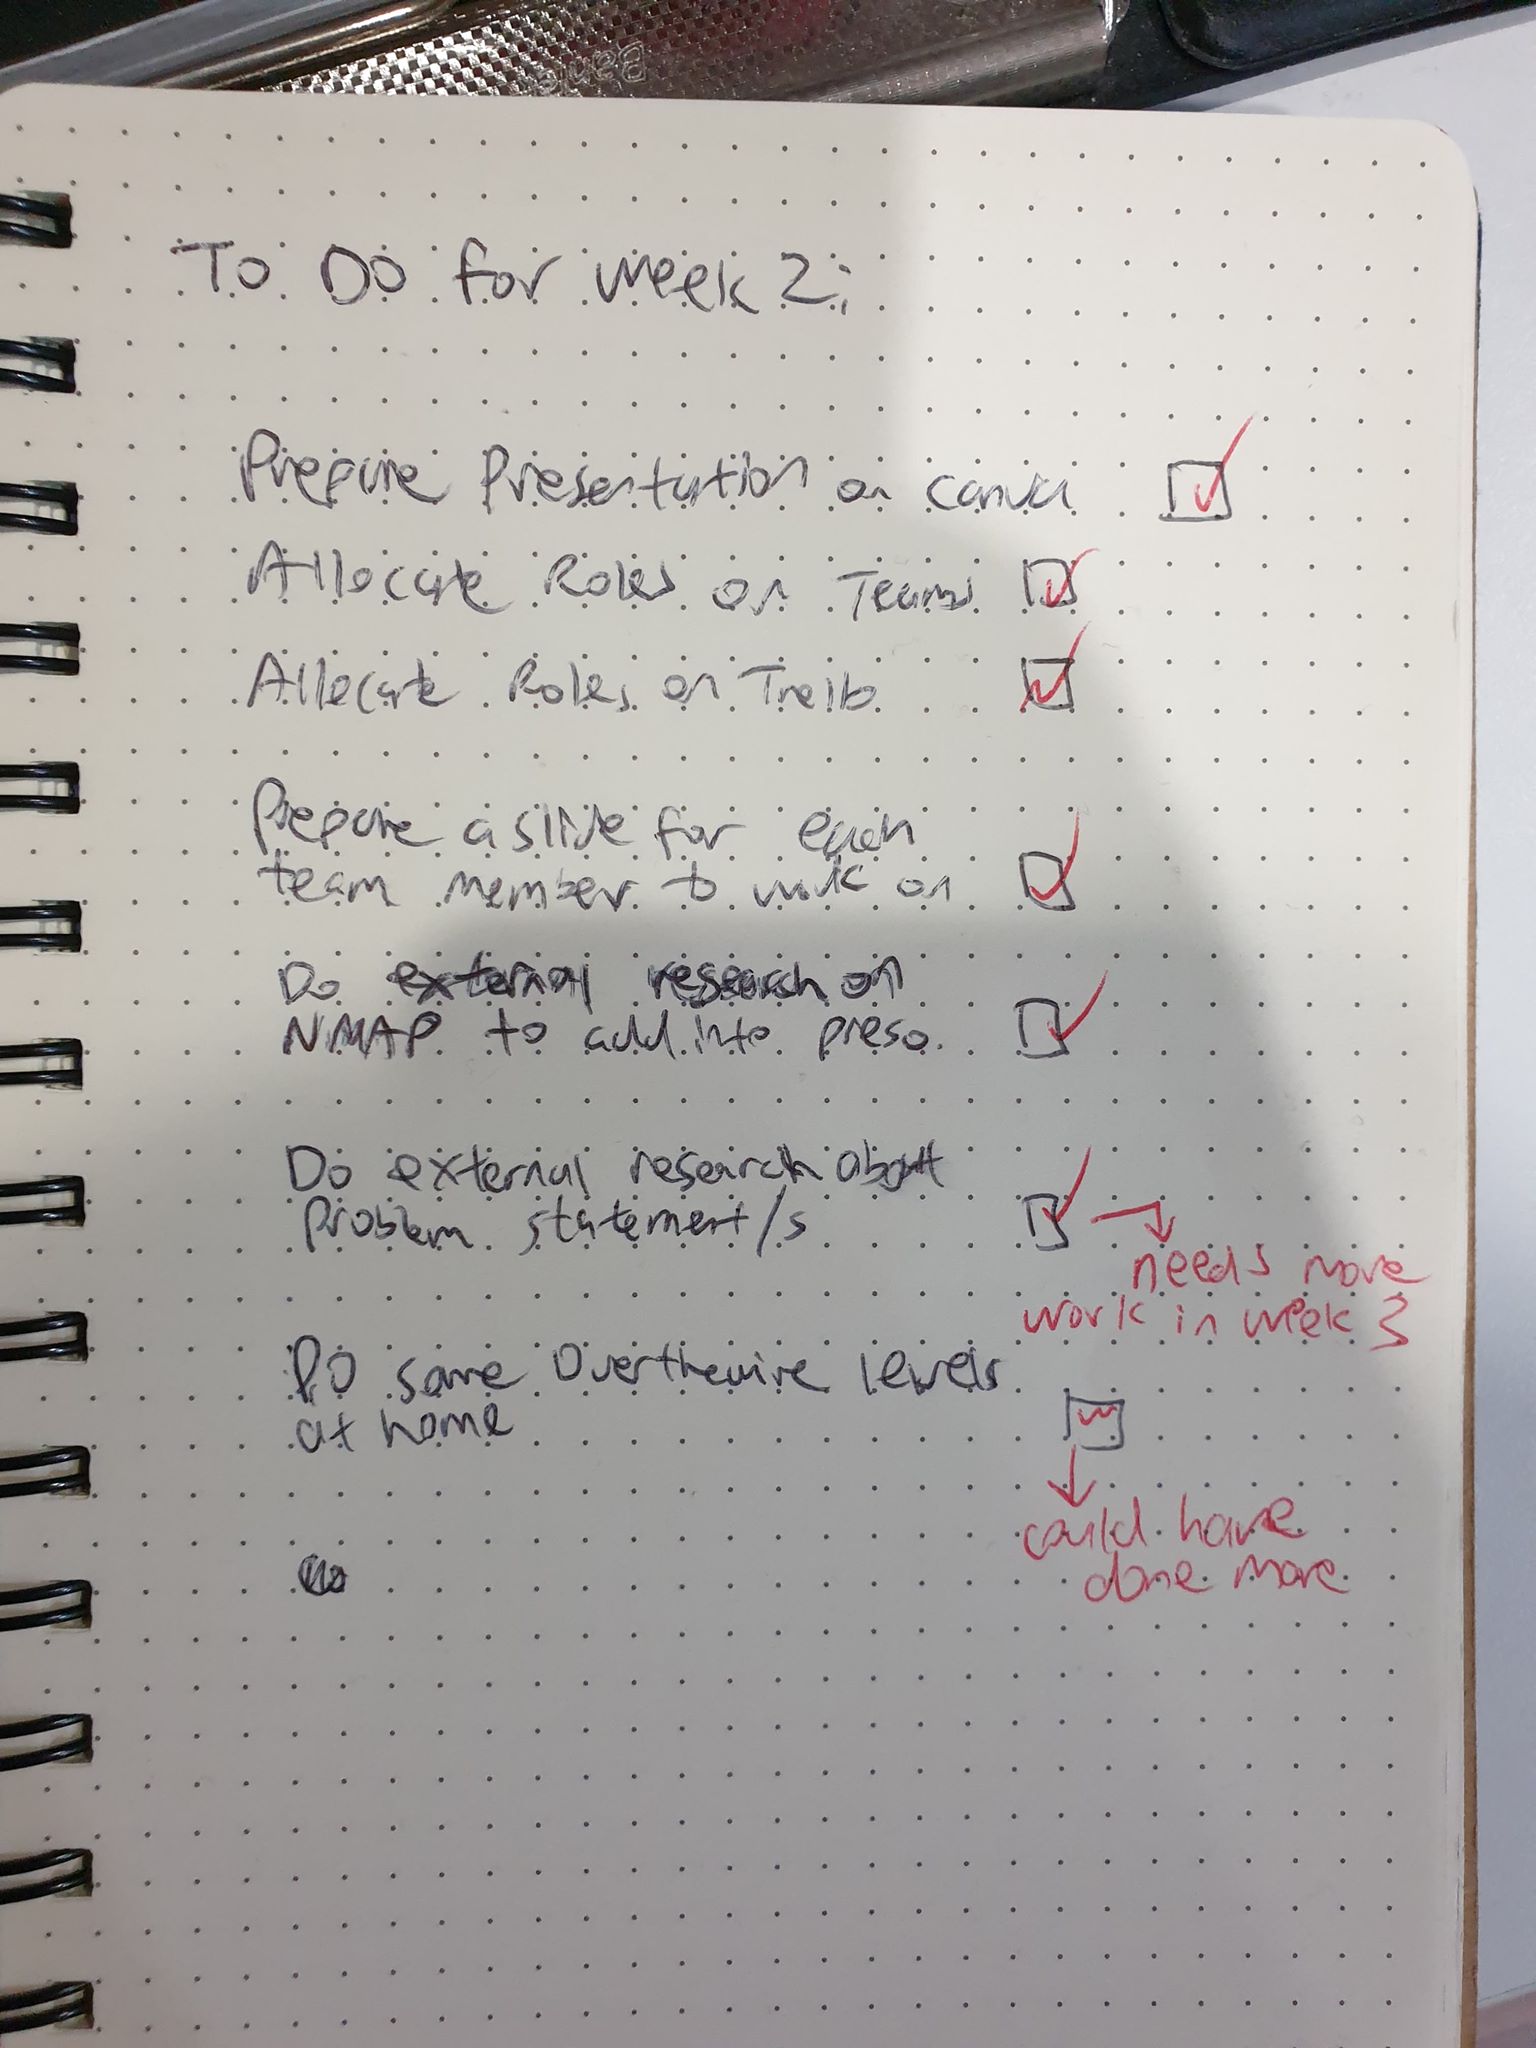 To Do for week 2:
Prepare Presentation on canva
Allocate Roles on Teams
Allocate Roles on Trello
Prepare a slide for each
team member to work on
Do external research on
NMAP to add into preso.
Do external research about
problem statement/s
needs more
work in week 3
DO some Overthewire levels
at home
could have
done more